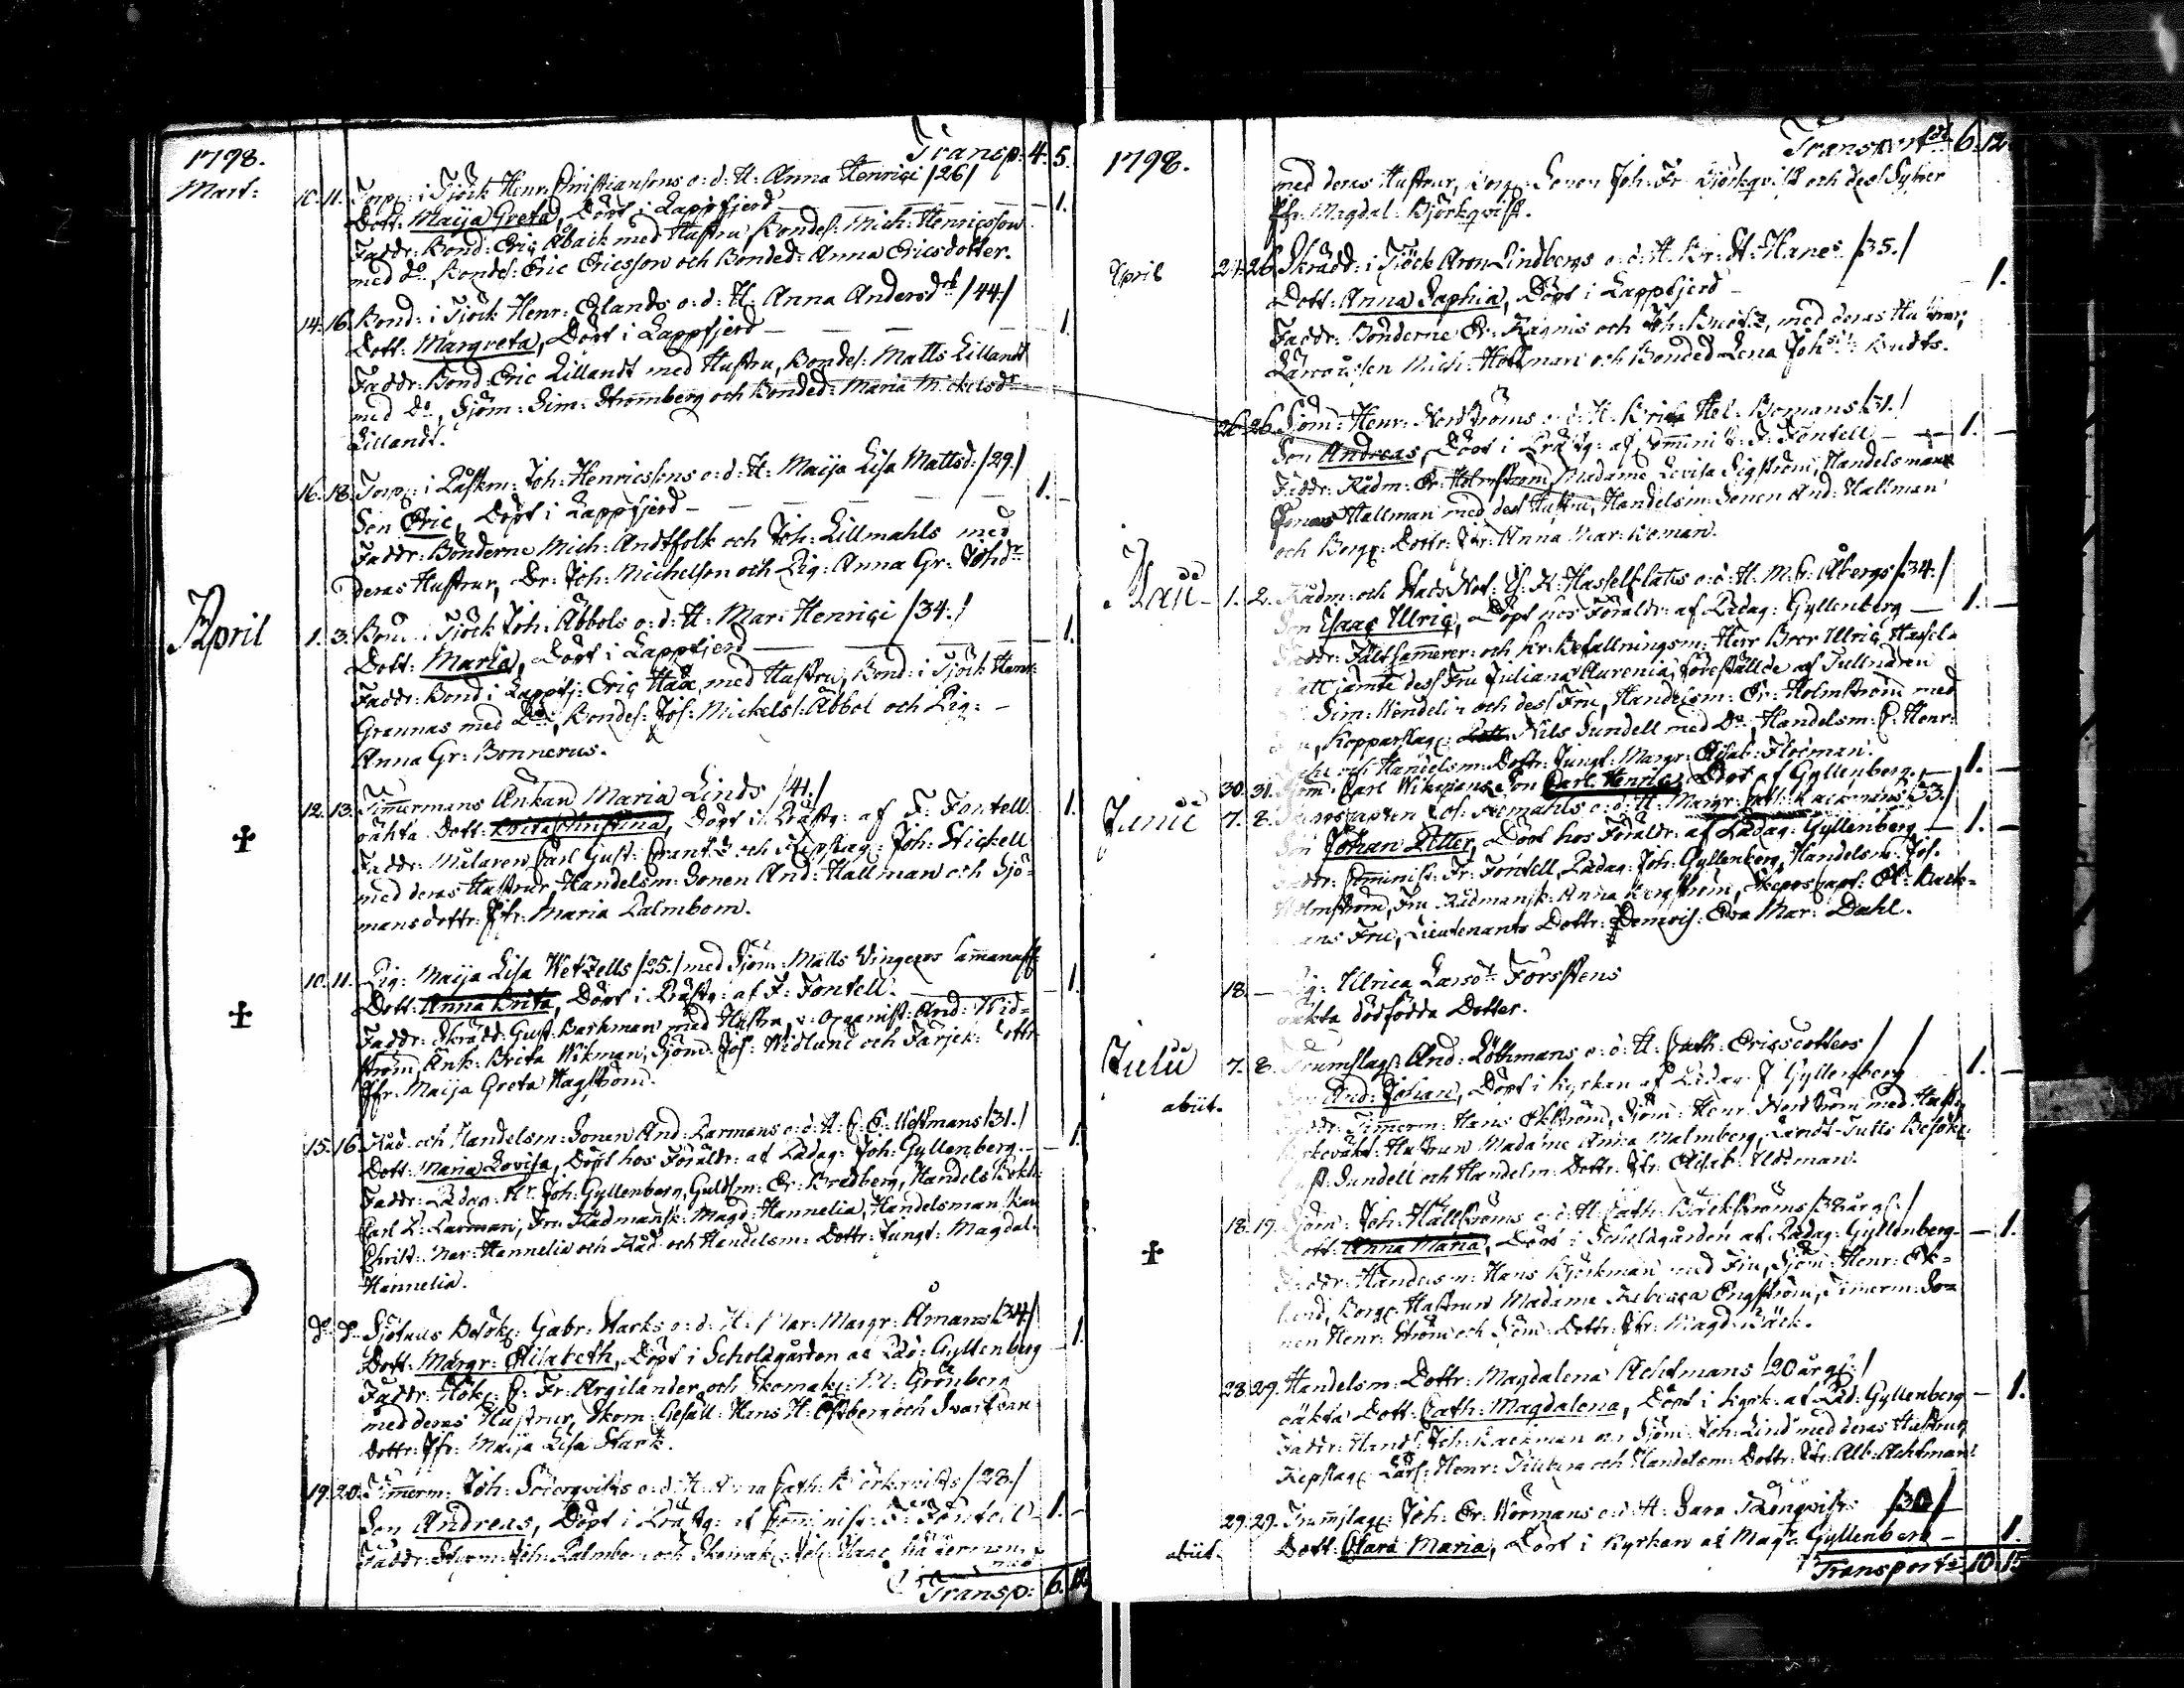 Transp: 4. 5.
1798.
Mart: 10. 11. Torp: i Tjöck Henr: Christiansons o: d: H: Anna Henrici /26/
Dott: Maija Greta, Döpt i Lappfjerd — 1.
Faddr: Bond: Eric Åback med Hustru, Bondes: Mich: Henricsson
med Do, Bondes: Eric Ericsson och Bonded: Anna Ericsdotter.
14. 16. Bond: i Tjöck Henr: Erlands o: d: H: Anna Andersdr /44/
Dott: Margreta, Döpt i Lappfjerd — 1.
Faddr: Bond: Eric Lillandt med Hustru, Bondes: Matts Lillandt
med Do, Sjöm: Sim: Strömberg och Bonded: Maria Mickelsdr
Lillandt.
16. 18. Torp: i Påskm: Joh: Henricssons o: d: H: Maija Lisa Mattsd: /29./
Son Eric, Döpt i Lappfjerd — 1. —
Faddr: Bönderne Mich: Andtfolk och Joh: Lillmahls med
deras Hustrur, Dr: Joh: Michelson och Pig: Anna Gr: Johdr
April 1. 3. Bond i Tjöck Joh: Åbbols o: d: H: Mar: Henrici /34./
Dott: Maria, Döpt i Lappfjerd — 1.
Faddr: Bond i Lappfj: Eric Haa, med Hustru, Bond: i Tjöck Henr:
Grannas med Do, Bondes: Jos: Mickelss: Åbbol och Pig: —
Anna Gr: Bonnerus.
12. 13. Timmermans Änkan Maria Linds /41./
oäkta Dott: Brita Christina, Döpt i Prästg: af F: Fontell — 1.
Faddr: Målaren Carl Gust: Crantz och Repslag: Joh: Stickell
med deras Hustrur, Handelsm: Sonen And: Hallman och Sjö=
mansdottr: Jfr: Maria Palmbom.
10. 11. Pig: Maija Lisa Wetzells /25./ med Sjöm: Matts Vingeros
Dott: Anna Brita, Döpt i Prästg: af F: Fontell. — 1.
Faddr: Skrädd: Gust: Backman med Hustru, v: Organist: And: Wid=
ström, Änk: Brita Wikman, Sjöm: Jos: Widlund och Färjek: Dottr
Jfr: Maija Greta Hagström.
15. 16. Råd: och Handelsm: Sonen And: Larmans o: d: H: C: E: Westmans /31./
Dott: Maria Lovisa, Döpt hos Föräldr: af Pädag: Joh: Gyllenberg. — 1.
Faddr: Pädag: Hr Joh: Gyllenberg, Guldsm: Er: Bredberg, Handels Bokh:
Carl P: Larman, Fru Rådmansk: Magd: Hannelia, Handelsman
Christ: Mar: Hannelia och Råd: och Handelsm: Dottr: Jungf: Magdal:
Hannelia.
Do Do Sjötulls Besök: Gabr: Starks o: d: H: Mar: Margr: Åmans /34/
Dott: Margr: Elisabeth, Döpt i Scholagården af Päd: Gyllenberg — 1.
Faddr: Hök: C: Fr: Argilander och Skomak: M: Grönberg
med deras Hustrur, Skom: Gesäll: Hans H: Östberg och
Dottr: Jfr: Maija Lisa Stark.
19. 20. Timerm: Joh: Söderqvists o: d: H: Anna Cath: Björkqvists /28./
Son Andreas, Döpt i Prästg: af Comminist: F: Fontell 1. —
Faddr: Styrm: Joh: Palmbom och Skomak: Joh: med
Transp: 6. 12.
Transport 6. 12.
1798.
med deras Hustrur, Borg: Sonen Joh: Fr: Björkqvist och dess Syster
Jfr: Magdal: Björkqvist.
April 24. 26. Skrädd: i Tjöck Aron Lindbergs o: d: H: Br: St: Hanes /35./
Dott: Anna Sophia, Döpt i Lappfjerd — 1.
Faddr: Bönderne Er: Ragnis och Joh: Budtz, med deras Hustrur,
Mich: Hoffman och Bonded Lena Johsdr: Budts.
26. 26. Sjöm: Henr: Nordströms o: d: H: Brita Hel: Bomans /31./
Son Andreas, Döpt i Prästg: af Comminist: F: Fontell — 1. —
Faddr: Rådm: Er: Holmström, Madame Lovisa Sigström, Handelsman
Jonas Hallman med dess Hustru, Handelsm: Sonen And: Hallman
och Borg: Dottr: Jfr: Anna Mar: Boman.
Maji 1. 2. Rådm: och Stads Not: Is: H: Hasselblats o: d: H: M: C: Åbergs /34./
Son Esaac Ulric, Döpt hos Föräldr: af Pädag: Gyllenberg — 1. —
Faddr: Fältkamerer: och Kr: Befallningsm: Herr Bror Ulric Hassel=
blatt jämte dess Fru Juliana Aurenia, föreställde af Tullnären
Sim: Wendelin och dess Fru, Handelsm: Er: Holmström med
Fru, Kopparslag: Nils Sundell med Do, Handelsm: C: Henr:
och Handelsm: Dottr: Jungf: Margr: Elisab: Floeman.
30. 31. Sjöm: Carl Wikmans Son Carl Henric, Döpt af Gyllenberg. — 1. —
Junii 7. 8. Skepscapten Jos: o: d: H: Margr: Cath: Backmans /33./
Son Johan Petter, Döpt hos Föräldr: af Pädag: Gyllenberg — 1. —
Faddr: Comminist: Fr: Fontell, Pädag: Joh: Gyllenberg, Handelsm: Jos:
Holmström, Fru Rådmansk: Anna Bergström, Skepscapt: Ol: Back=
mans Fru, Lieutenants Dottr: Demois: Eva Mar: Dahl.
18. — Pig: Ulrica Larsdr Forsstens
oäkta dödfödda Dotter.
Julii 7. 8. Trumslag: And: Löthmans o: d: H: Cath: Ericsdotters / /
abiit. Son And: Johan, Döpt i Kyrkan af Pädag: J Gyllenberg 1. —
Faddr: Timerm: Hans Ekström, Sjöm: Henr: Nordström med Hustru
Hustrun Madame Anna Malmberg, Landt-Tulls Besök:
Gust: Sundell och Handelm: Dottr: Jfr: Elisab: Floeman.
18. 19. Sjöm: Joh: Hällströms o: d: H: Cath: Bäckströms /38 årg:/
Dott: Anna Maria, Döpt i Scholagården af Pädag: Gyllenberg — 1.
Faddr: Handelsm: Hans Björkman med Fru, Sjöm: Henr: Ek=
lund, Borg: Hustrun Madame Rebecca Engström, Timerm: So=
nen Henr: Ström och Sjöm: Dottr: Jfr: Magd: Bäck.
28. 29. Handelsm: Dottr: Magdalena Achtmans /20 årg:/
oäkta Dott: Cath: Magdalena, Döpt i Kyrk: af Päd: Gyllenberg — 1.
Faddr: Handl: Joh: Backman och Sjöm: Joh: Lind med deras Hustrur,
Repslag: Lärl: Henr: och Handelsm: Dottr: Jfr: Alb: Achtman.
29. 29. Trumslag: Joh: Er: Normans o: d: H: Sara /30/
abiit. Dott: Clara Maria, Döpt i Kyrkan af Magr Gyllenberg — 1.
Transport 10. 15